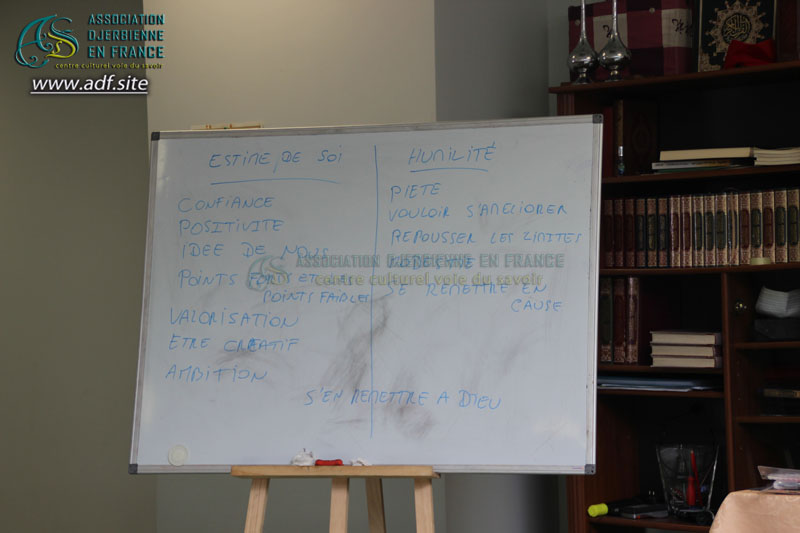 ASSOCIATION
DJERBIENNE
EN FRANCE
centre culturel voie du savoir
www.adf.site
ESTIME DE SOI
CONFIANCE
POSITIVITE
IDEE DE NOUS
POINTS FORTS ET
POINTS FAIBLES
VALORISATION
ETRE CREATIF
AMBITION
HUMILITÉ
PIETE
VOULOIR S'AMELIORER
REPOUSSER LES LIMITES
SE REMETTRE EN
CAUSE
S'EN REMETTRE A DIEU
ASSOCIATION DJERBIENNE EN FRANCE
centre culturel voie du savoir